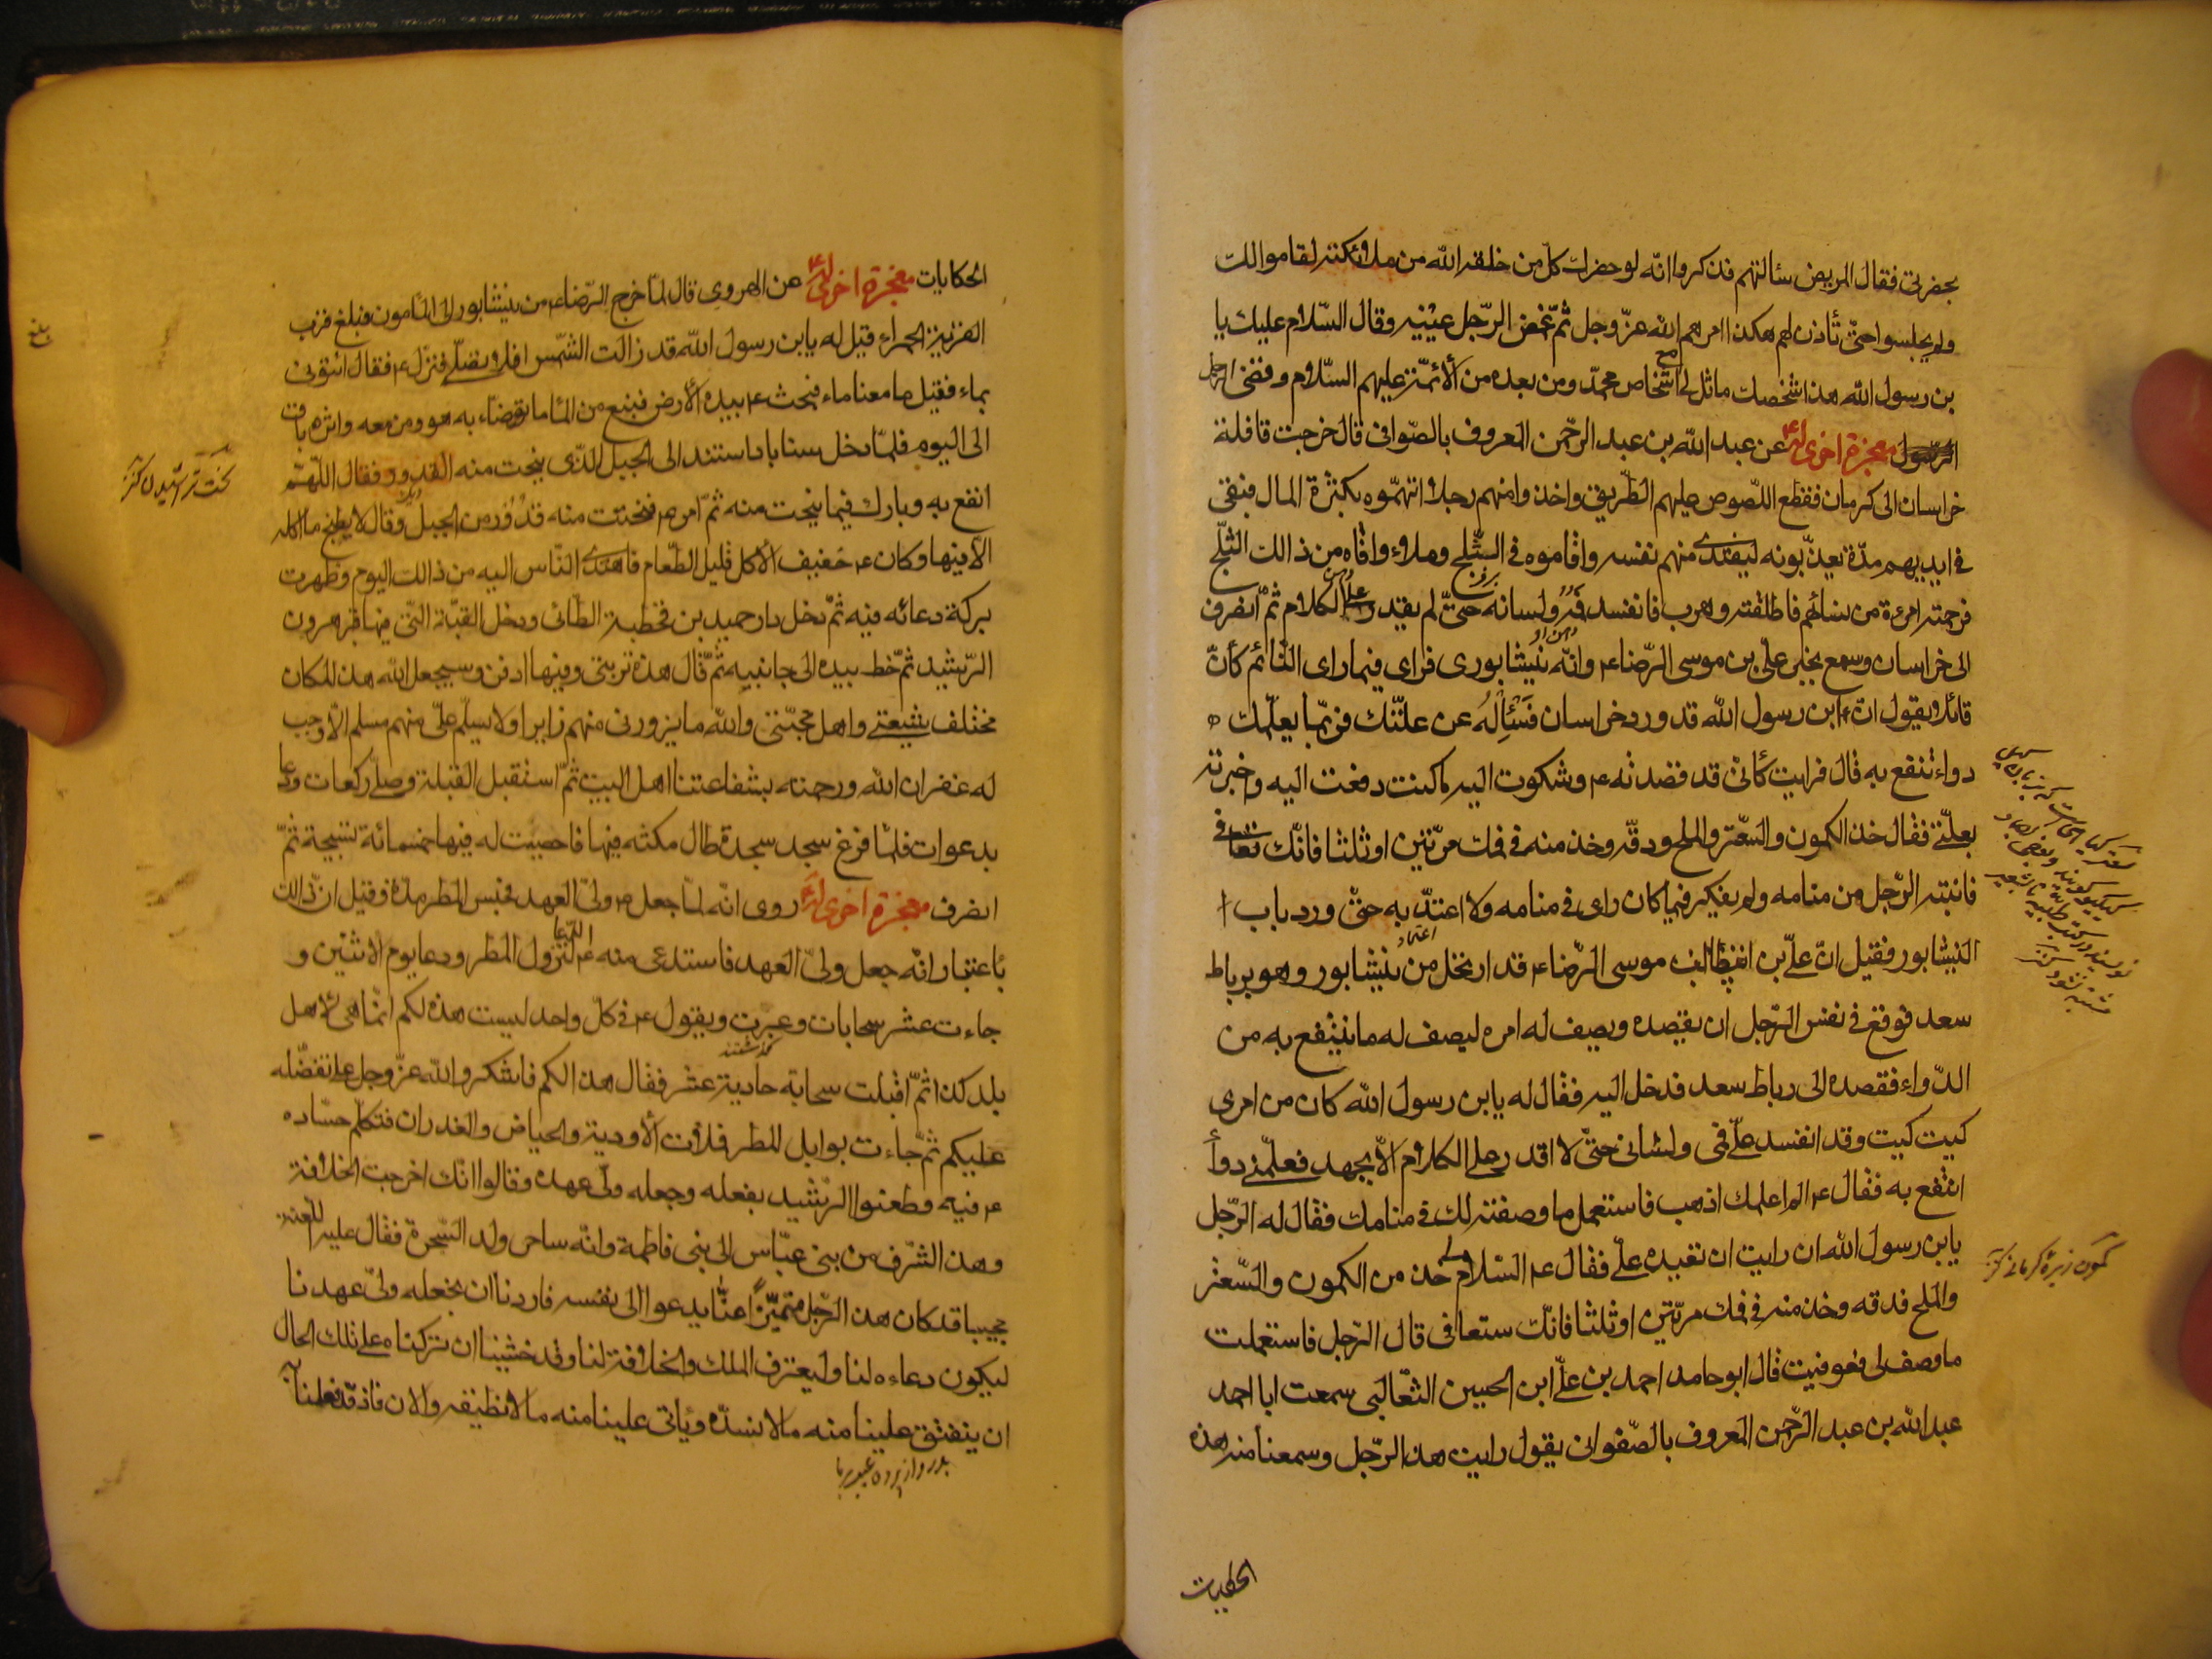 بحضرتی فقال المریض سئالتهم فذکروا انّه لو حضرك کلّ من خلقه الله من ملائکته لقاموا لك
ولم یجلسوا حتّی تأذن لهم هکذا امرهم الله عزّ وجل ثمّ غمض الرّجل عینیه وقال السّلام علیك یا
بن رسول الله هذا شخصك ماثل لی مع اشخاص محمّد ومن بعده من الأئمّة علیهم السّلام وقضی الرجل
معجزة اخری له عن عبد الله بن عبد الرّحمن المعروف بالصّوانی قال خرجت قافلة
خراسان الی کرمان فقطع اللّصوص علیهم الطّریق واخذوا منهم رجلا اتهمّوه بکثرة المال فبقی
فی ایدیهم مدّة یعذّبونه لیفتدی منهم نفسه واقاموه فی الثّلج وملاوا فاه من ذالك الثّلج
فرحمته امرءة من نسائهم فاطلقته وهرب فانفسد فمه ولسانه حتّی لم یقدر علی الکلام ثمّ انصرف
الی خراسان وسمع بخبر علی بن موسی الرّضاء ع وانّه بنیشابوری فرای فیما رای النّائم کأنّ
قائلا یقول انّ ابن رسول الله قد ورد خراسان فسئله عن علّتك فربّما یعلّمك
دواء تنتفع به قال فرایت کأنّی قد قصدته ع وشکوت الیه ما کنت دفعت الیه واخبرته
بعلّتی فقال خذ الکمون والسّعتر والملح ودقّه وخذ منه فی فمك مرّتین او ثلثا فانّك تعافی
فانتبه الرّجل من منامه ولم یفکر فیما کان رای فی منامه ولا اعتدّ به حتّی ورد باب
النیشابور فقیل انّ علیّ بن موسی الرّضاء ع قد ارتحل من نیشابور وهو برباط
سعد فوقع فی نفس الرّجل ان یقصده ویصف له امره لیصف له ما ینتفع به من
الدّواء فقصده الی رباط سعد فدخل الیه فقال له یابن رسول الله کان من امری
کیت کیت وقد انفسد علیّ فمی ولسانی حتّی لا اقدر علی الکلام الاّ بجهد فعلّمنی دوأ
انتفع به فقال ع الم اعلمك اذهب فاستعمل ما وصفته لك فی منامك فقال له الرّجل
یابن رسول الله ان رایت ان تعیده علیّ فقال ع السّلام خذ من الکمون والسّعتر
والملح فدقه وخذ منه فی فمك مرّتین او ثلثا فانّك ستعافی قال الرّجل فاستعملت
ما وصف لی فعوفیت قال ابو حامد احمد بن علیّ ابن الحسین الثعّالبی سمعت ابا احمد
عبد الله بن عبد الرّحمن المعروف بالصّفوانی یقول رایت هذا الرّجل وسمعنا منه هذه
کمون زیرهٔ کرمانی کنز
الحکایات
الحکایات معجزة اخری له عن الهروی قال لمّا خرج الرّضاء ع من نیشابور الی المأمون فبلغ قرب
القریة الحمراء قیل له یابن رسول الله قد زالت الشّمس افلا تصلّی فنزل ع فقال ائتونی
بماء فقیل ما معنا ماء فبحث ع بیده الأرض فنبع من الماء ما توضّاء به هو ومن معه واثره باق
الی الیوم فلمّا دخل سناباد استند الی الجبل الّذی ینحت منه القدور فقال اللّهمّ
انفع به وبارك فیما ینحت منه ثمّ امر ع فنحتت منه قدور من الجبل وقال لا یطبخ ما اکله
الاّ فیها وکان ع خفیف الأکل قلیل الطّعام فاهتدی النّاس الیه من ذالك الیوم وظهرت
برکة دعائه فیه ثمّ دخل دار حمید بن قحطبة الطّائی ودخل القبّة الّتی فیها قبر هرون
الرّشید ثمّ خط بیده الی جانبیه ثمّ قال هذه تربتی وفیها ادفن وسیجعل الله هذا المکان
مختلف شیعتی واهل محبّتی والله ما یزورنی منهم زایر اولا یسلّم علیّ منهم مسلم الاّ وجب
له غفران الله ورحمته بشفاعتنا اهل البیت ثمّ استقبل القبلة وصلّی رکعات ودعا
بدعوات فلمّا فرغ سجد سجدة طال مکثه فیها فاحصیت له فیها خمسمائة تسبیحة ثمّ
انصرف معجزة اخری له روی انّه لمّا جعل ع ولیّ العهد فحبس المطر مدّة وقیل انّ ذالك
بأعتبار انّه جعل ولیّ العهد فاستدعی منه ع الدّعا لنزول المطر ودعا یوم الاثنین و
جاءت عشر سحابات وعبرت ویقول ع فی کلّ واحد لیست هذه لکم انّما هی لأهل
بلد کذا ثمّ اقبلت سحابة حادیة عشر فقال هذا لکم فاشکروا الله عزّ وجل علی تفضّله
علیکم ثمّ جاءت بوابل المطر فلأت الأودیة والحیاض والغدران فتکلّم حسّاده
ع فیه وطعنوا الرّشید بفعله وجعله ولی عهده وقالوا انّك اخرجت الخلافة
وهذا الشّرف من بنی عبّاس الی بنی فاطمة وانّه ساحر ولد السّحرة فقال علیه اللّعنة
مجیبا قد کان هذا الرّجل متمیّزا عنّا یدعوا الی نفسه فاردنا ان نجعله ولیّ عهدنا
لیکون دعاءه لنا ولیعترف الملك والخلافة لنا وقد خشینا ان ترکناه علی تلك الحال
ان ینفتق علینا منه مالا نسدّه ویأتی علینا منه مالا نطیقه والان فاذ قد فعلنا به